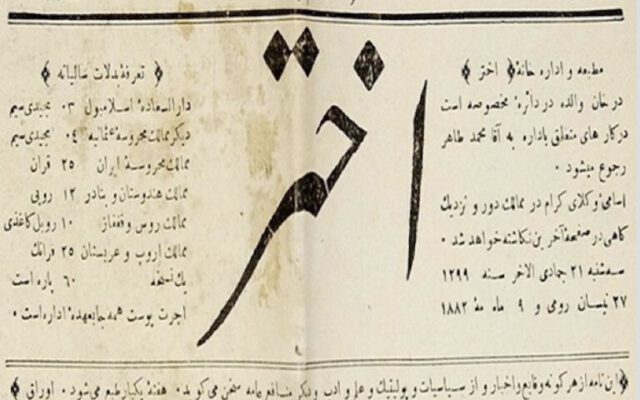 مطبعه و اداره خانهٔ ﴿ اختر ﴾
در خان والده در دائرهٔ مخصوصه است
در کارهای متعلق باداره به آقا محمد طاهر
رجوع میشود ۰
اسامی وکلای کرام در ممالک دور و نزدیک
کاهی در صفحهٔ آخرین نکاشته خواهد شد ۰
سه‌شنبه ۲۱ جمادی الاخر سنه ۱۲۹۹
۲۷ نیسان رومی و ۹ ماه مهٔ ۱۸۸۲
اختر
﴿ تعرفهٔ بدلات سالیانه ﴾
دار السعادهٔ اسلامبول ۰۳ مجیدی سیم
دیکر ممالک محروسهٔ عثمانیه ۰۴ مجیدی سیم
ممالک محروسهٔ ایران ۲۵ قران
ممالک هندوستان و بنادر ۱۲ روپی
ممالک روس و قفقاز ۱۰ روبل کاغذی
ممالک اروپ و عربستان ۲۵ فرانک
یک نسخه ۶۰ پاره است
اجرت پوست همه جا بعهدهٔ اداره است ۰
﴿ این نامه از هر کونه وقایع و اخبار و از سیاسیات و پولیتیک و علم و ادب و دیکر منافع عامه سخن می کوید ۰ هفتهٔ یکبار طبع می شود ۰ اوراق